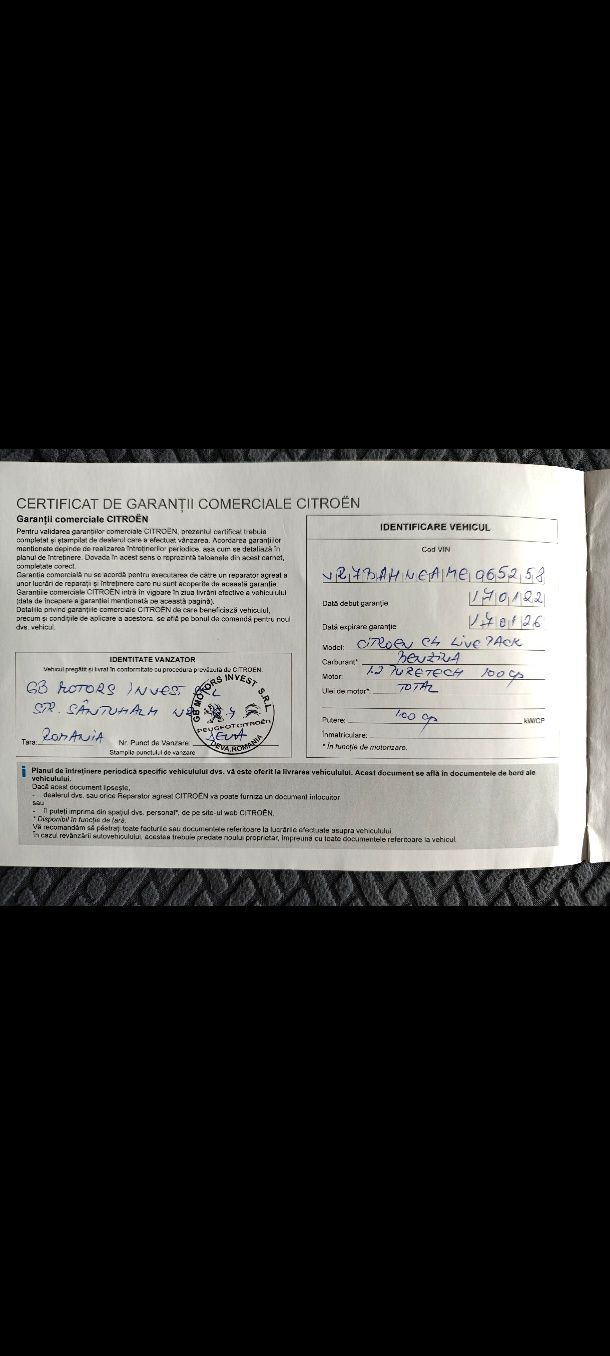 CERTIFICAT DE GARANȚII COMERCIALE CITROËN
Garanții comerciale CITROËN
Pentru validarea garanțiilor comerciale CITROËN, prezentul certificat trebuie
completat și ștampilat de dealerul care a efectuat vânzarea. Acordarea garanțiilor
menționate depinde de realizarea întreținerilor periodice, așa cum se detaliază în
planul de întreținere. Dovada în acest sens o reprezintă taloanele din acest carnet,
completate corect.
Garanția comercială nu se acordă pentru executarea de către un reparator agreat a
unor lucrări de reparații și întreținere care nu sunt acoperite de această garanție.
Garanțiile comerciale CITROËN intră în vigoare în ziua livrării efective a vehiculului
(data de începere a garanției menționată pe această pagină).
Detaliile privind garanțiile comerciale CITROËN de care beneficiază vehiculul,
precum și condițiile de aplicare a acestora, se află pe bonul de comandă pentru noul
dvs. vehicul.
IDENTITATE VANZATOR
Vehicul pregătit și livrat în conformitate cu procedura prevăzută de CITROËN.
GB MOTORS INVEST SRL
STR. SÂNTUHALM
ROMANIA DEVA
Tara: Nr. Punct de Vanzare:
Stampila punctului de vanzare
GB MOTORS INVEST S.R.L.
PEUGEOT CITROËN
DEVA, ROMANIA
IDENTIFICARE VEHICUL
Cod VIN
VR7BAHNEAME065258
Dată debut garanție 170122
Dată expirare garanție 170126
Model: CITROEN C4 LIVE PACK
Carburant* BENZINA
Motor: 1.2 PURETECH 100 cp
Ulei de motor*: TOTAL
Putere: 100 cp kW/CP
Inmatriculare:
* În funcție de motorizare.
i Planul de întreținere periodică specific vehiculului dvs. vă este oferit la livrarea vehiculului. Acest document se află în documentele de bord ale
vehiculului.
Dacă acest document lipsește,
- dealerul dvs. sau orice Reparator agreat CITROËN vă poate furniza un document înlocuitor
sau
- îl puteți imprima din spațiul dvs. personal*, de pe site-ul web CITROËN.
* Disponibil în funcție de țară.
Vă recomandăm să păstrați toate facturile sau documentele referitoare la lucrările efectuate asupra vehiculului.
În cazul revânzării autovehiculului, acestea trebuie predate noului proprietar, împreună cu toate documentele referitoare la vehicul.